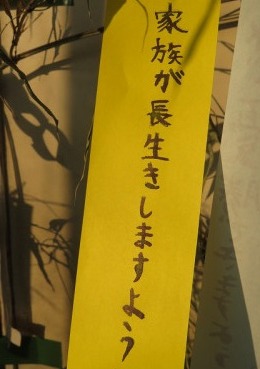 家族が長生きしますよう